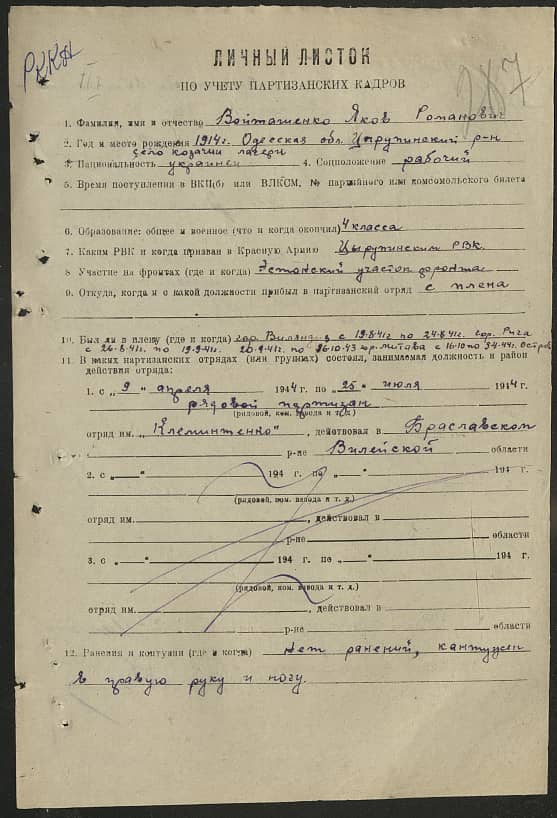 РККА
ЛИЧНЫЙ ЛИСТОК
287
ПО УЧЕТУ ПАРТИЗАНСКИХ КАДРОВ
1. Фамилия, имя и отчество Войташенко Яков Романович
2. Год и место рождения 1914г. Одесская обл. Цюрупинский р-н
село козачии лагери
3. Национальность украинец 4. Соцположение рабочий
5. Время поступления в ВКП(б) или ВЛКСМ, № партийного или комсомольского билета
6. Образование: общее и военное (что и когда окончил) 4 класса
7. Каким РВК и когда призван в Красную Армию Цырупинским РВК.
8 Участие на фронтах (где и когда) Эстонский участок фронта
9. Откуда, когда и с какой должности прибыл в партизанский отряд с плена
10. Был ли в плену (где и когда) гор. Вилянд з с 19.8.41г. по 24.8.41г. гор. Рига
с 26.8.41г. по 19.9.41г. 20.9.41г. по 16.10.43 гор. Литава с 16.10 по 3.4.44г. Остров
11. В каких партизанских отрядах (или группах) состоял, занимаемая должность и район
действия отряда:
1. с „ 9 " апреля 1944 г. по „ 25 " июля 1944 г.
рядовой партизан
(рядовой, ком. взвода и т. д.)
отряд им. „Клеминтженко", действовал в Браславском
р-не Вилейской области
2. с „ " 194 г. по „ " 194 г.
(рядовой, ком. взвода и т. д.)
отряд им. , действовал в
р-не области
3. с „ " 194 г. по „ " 194 г.
(рядовой, ком. взвода и т. д.)
отряд им. , действовал в
р-не области
12. Ранения и контузии (где и когда) нет ранений, кантужен
в правую руку и ногу.